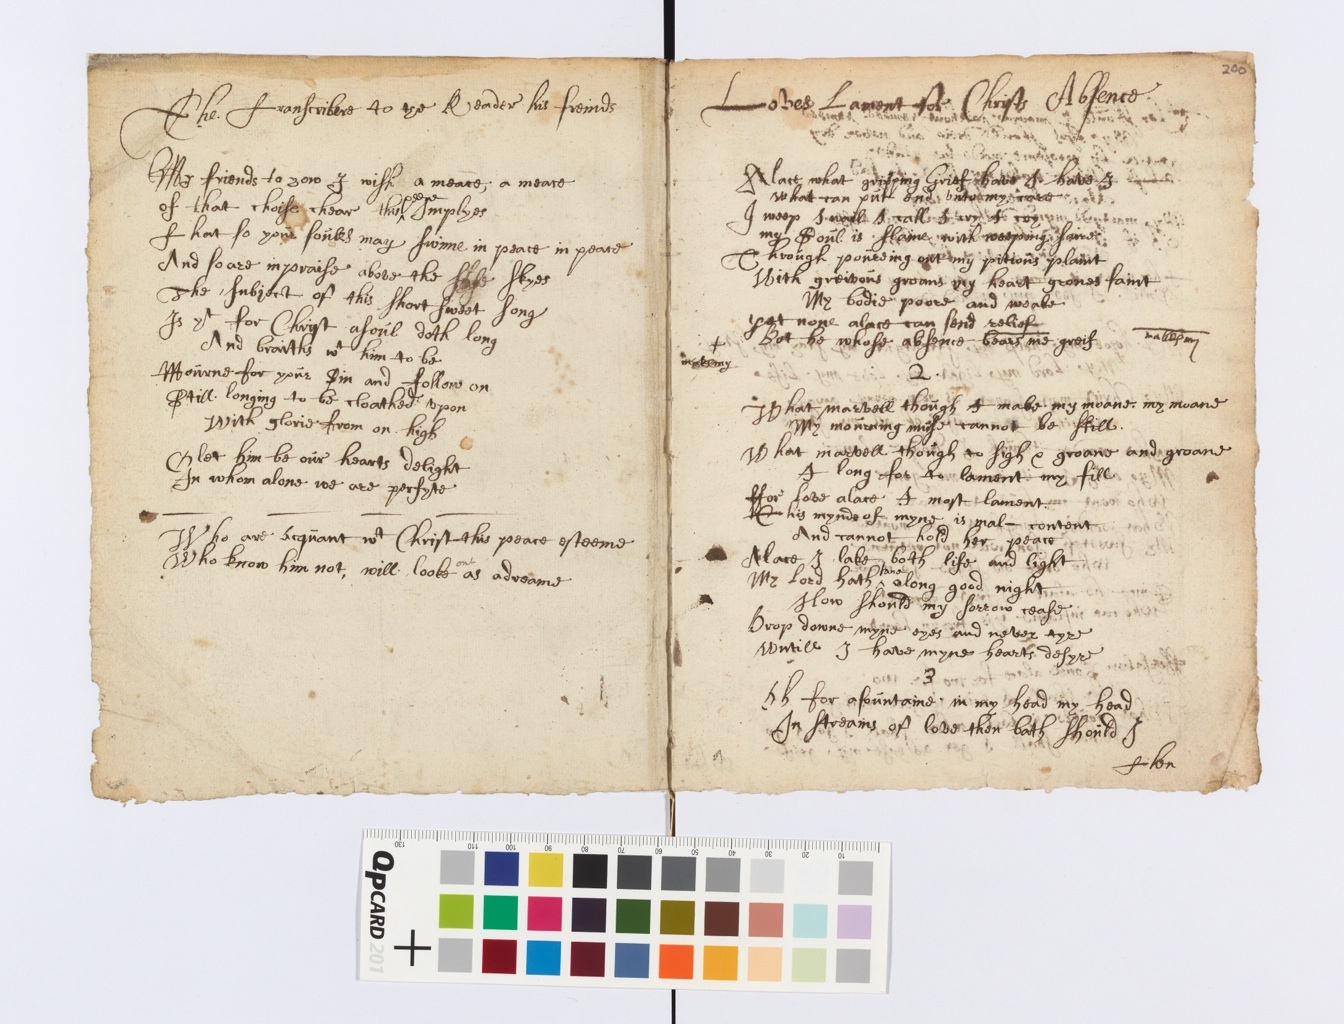 The Transcribere to the Reader his freinds
My friends to zow I wish a meace, a meace
of that choise chear this peece Implyes
That so your soules may swime in peace in peace
And soare in praise above the skyes
The subject of this short sweet song
Is yt for Christ a soul doth long
And braiths wt him to be
Mourne for your Sin and follow on
Still longing to be cloathed upon
With glorie from on high
O let him be our hearts delight
In whom alone we are perfyte
Who are acquant wt Christ this peace esteeme
Who know him not, will looke on't as a dreame
200
Loves Lament for Christs Absence
Alace what griping Grief have I have I
What can put end unto my care
I weep I waill I call I cry I cry
my Soul is slaine with weeping sare
Through poureing out my pitious plaint
With greivous groans my heart grones faint
My bodie poore and weake
yet none alace can send relief
Bot he whose absence bears me greif
makes my
+
makes my
2
What marvell though I make my moane my moane
My mourning muse cannot be still.
What marvell though to sigh & groane and groane
I long for to lament my fill
For love alace I most lament
This mynde of myne is mal content
And cannot hold her peace
Alace I lake both life and light
My Lord hath tane a long good night
How should my sorrow cease
Drop downe myne eyes and never tyre
Untill I have myne hearts desyre
3
Oh for a fountaine in my head my head
In streams of love then bath should I
then
QPCARD 201
130 110 100 90 80 70 60 50 40 30 20 10